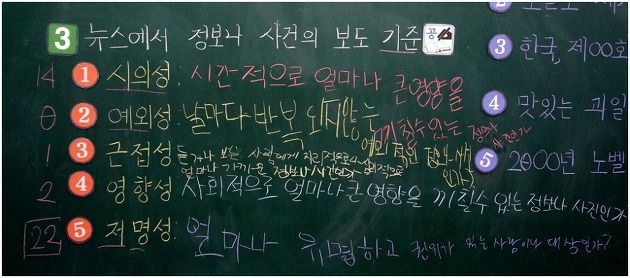 3 뉴스에서 정보나 사건의 보도 기준 공
14 1 시의성: 시간적으로 얼마나 큰영향을 끼칠수있는 정보나 사건인가
0 2 예외성: 날마다 반복되지않는 예외적인 정보나 사건인가?
1 3 근접성: 듣거나 보는 사람에게 지리적으로나 심리적으로 얼마나 가까운 정보나 사건인가
2 4 영향성: 사회적으로 얼마나큰영향을 끼칠수 있는 정보나 사진인가
22 5 저명성: 얼마나 유명하고 권위가 있는 사람이나 대상인가?
3 한국, 제00회
4 맛있는 과일
5 2000년 노벨